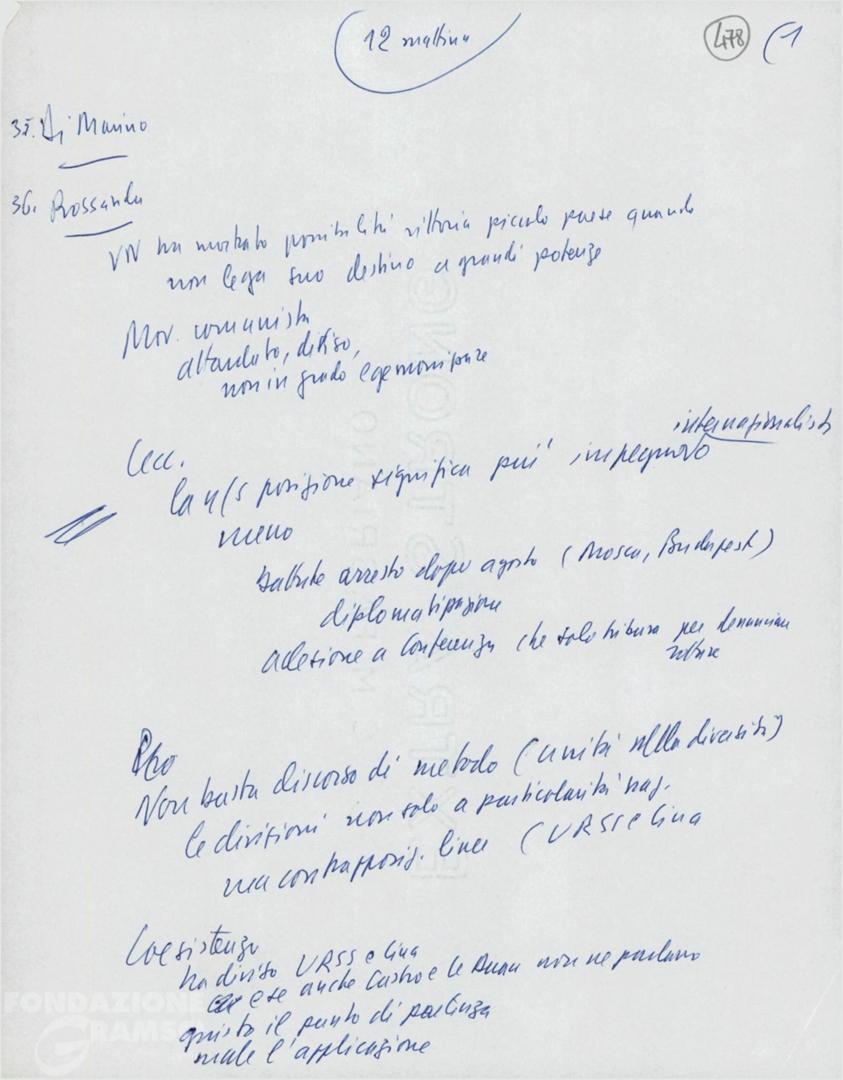 12 mattina
478
(1
35. Di Marino
36. Rossanda
VN ha mostrato possibilità vittoria piccolo paese quando
non lega suo destino a grandi potenze
Mov. comunista
attardato, diviso,
non in grado egemonizzare
Cecc.
la n/s posizione significa più impegno internazionalista
meno
battute arresto dopo agosto (Mosca, Budapest)
diplomatizzazione
adesione a Conferenza che solo tribuna per denunciare
rotture
Non basta discorso di metodo (unità nella diversità)
le divisioni non solo a particolarità naz.
ma contrapposiz. linee (URSS e Cina
Coesistenza
ha diviso URSS e Cina
e se anche Castro e Le Duan non ne parlano
giusto il punto di partenza
male l'applicazione
FONDAZIONE
GRAMSCI